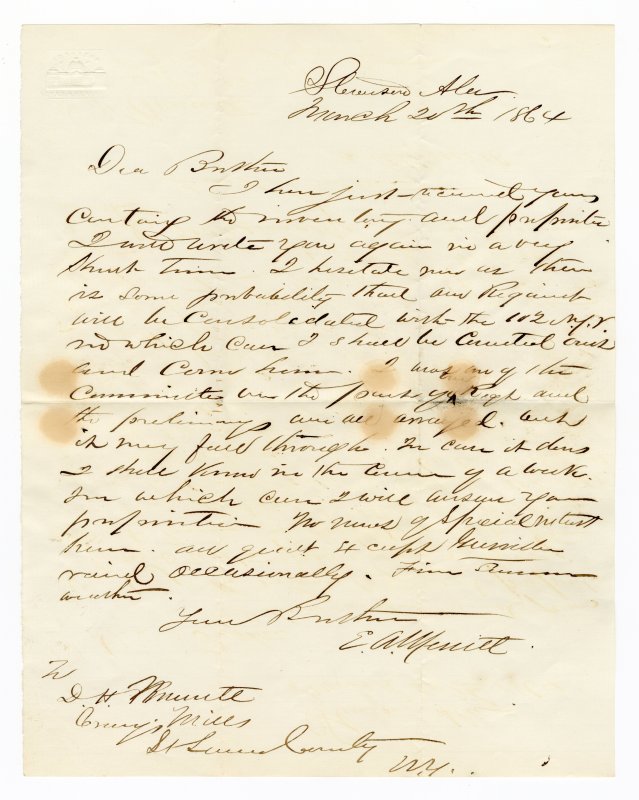 Stevenson Ala.
March 20th 1864
Dear Brother
I have just received yours
containg the inventory and proposition
I will write you again in a very
short time. I hesitate now as there
is some probability that our Regiment
will be Consolidated with the 102 N.Y.V.
in which case I shall be
and Come home. I was one of the
Committee on the part of our Regt and
the preliminarys are all arranged. but
it may fall through. In case it does
I shall know in the Course of a week.
In which case I will answer your
proposition No news of Special intrest
here. all quiet Except Guerrilla
raid occasionally. Fine Summer
weather.
Your Brother
E. A. Merritt.
To
D. H. Merritt
Craigs Mills
St Lawrence County
N.Y.